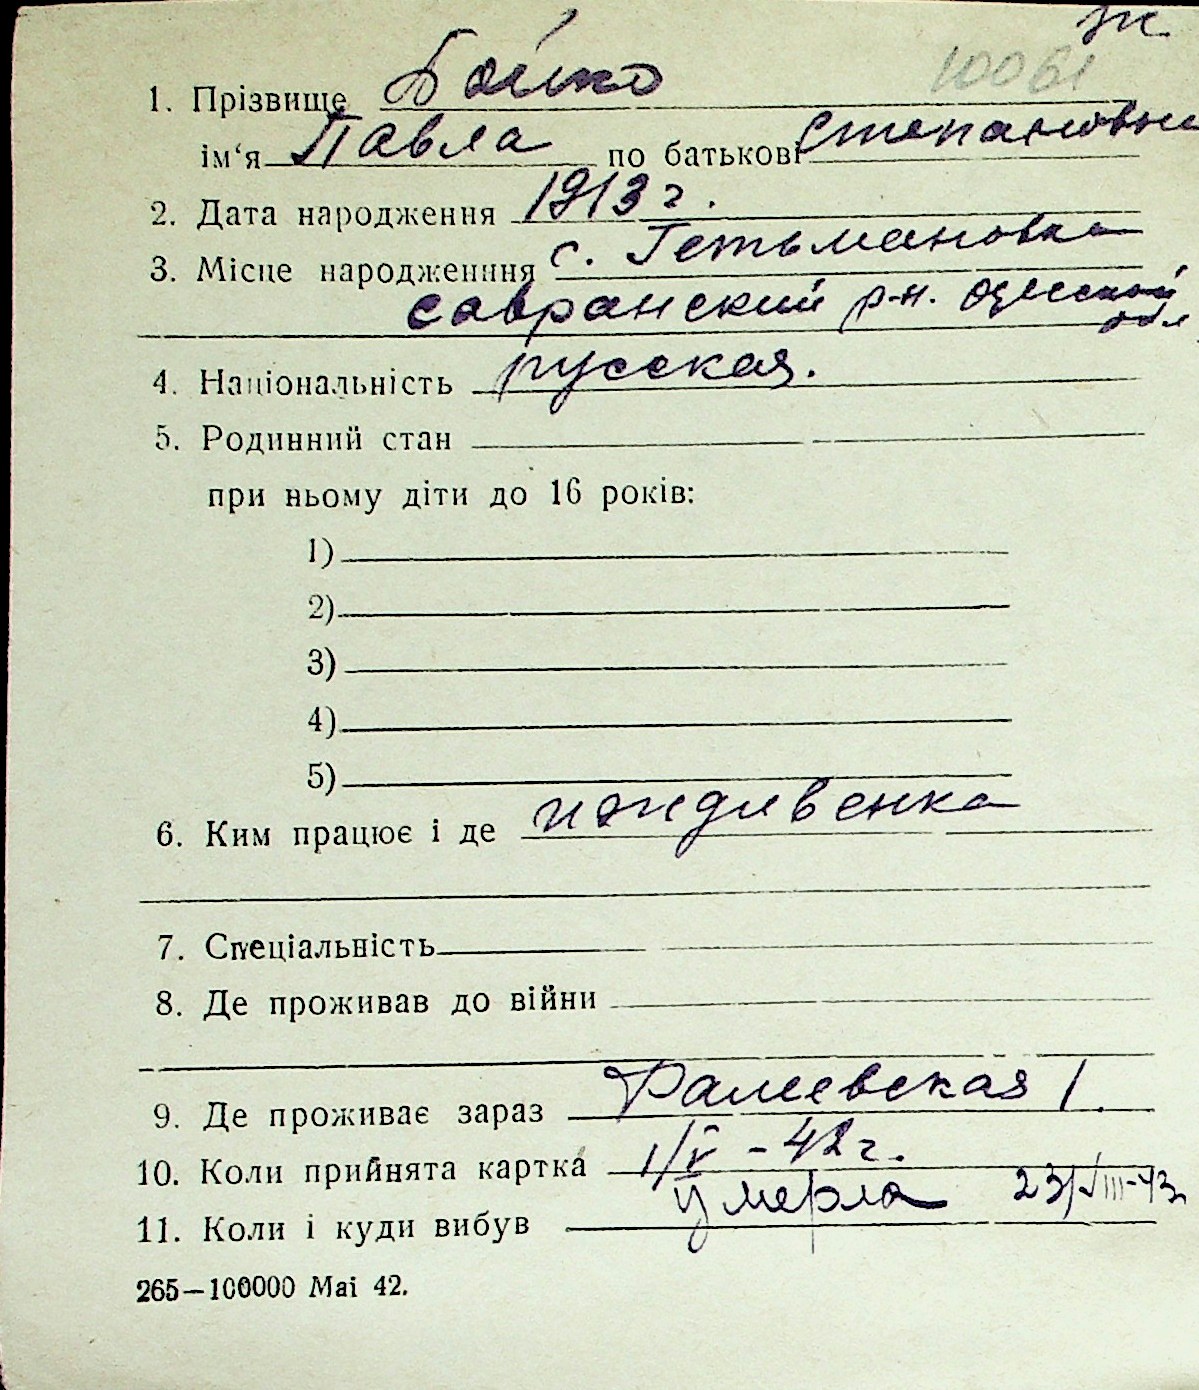 ж.
10061
1. Прізвище Бойко
ім‘я Павла по батькові Степановны
2. Дата народження 1913 г.
3. Місце народженння с. Гетьмановка
савранский р-н. Одесской
обл
4. Національність русская.
5. Родинний стан
при ньому діти до 16 років:
1)
2)
3)
4)
5)
6. Ким працює і де иждивенка
7. Спеціальність
8. Де проживав до війни
9. Де проживає зараз Фалеевская 1.
10. Коли прийнята картка 1/V - 42 г.
11. Коли і куди вибув умерла 23/VIII-43
265—100000 Mai 42.